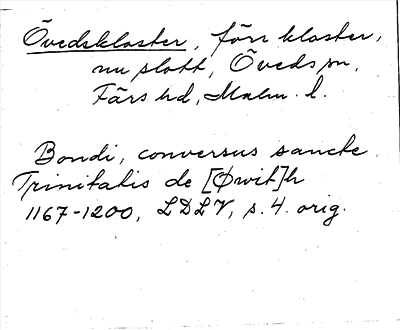 Övedskloster, förr kloster,
nu slott, Öveds sn,
Färs hd, Malm. l.
Bondi, conversus sancte
Trinitatis de [Øwit]h
1167-1200, LDLV, s. 4. orig.